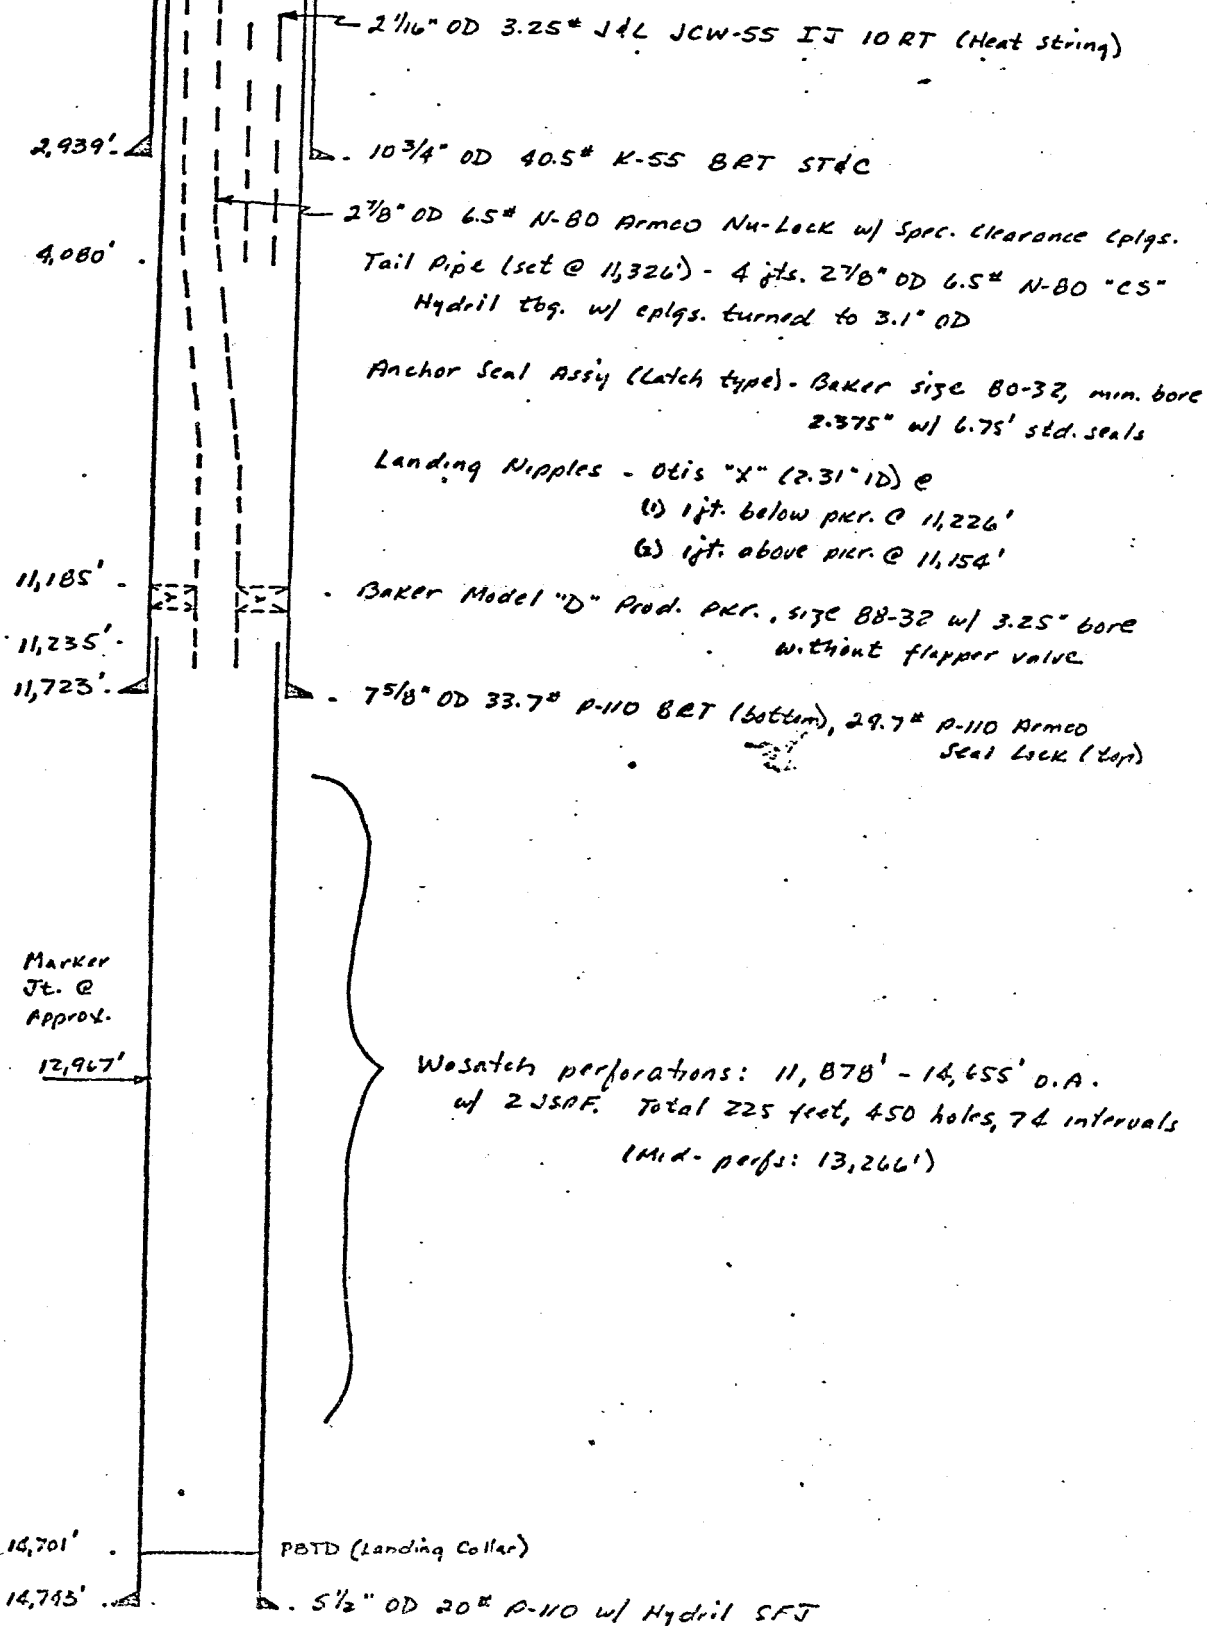 2 1/16" OD 3.25# J&L JCW-55 IJ 10 RT (Heat String)
2,939'
10 3/4" OD 40.5# K-55 8RT ST&C
2 7/8" OD 6.5# N-80 Armco Nu-Lock w/ Spec. Clearance Cplgs.
4,080'
Tail Pipe (set @ 11,326') - 4 jts. 2 7/8" OD 6.5# N-80 "CS"
Hydril tbg. w/ cplgs. turned to 3.1" OD
Anchor Seal Assy (Latch type) - Baker size 80-32, min. bore
2.375" w/ 6.75' std. seals
Landing Nipples - Otis "X" (2.31" ID) @
(1) 1 jt. below pkr. @ 11,226'
(2) 1 jt. above pkr. @ 11,154'
11,185'
Baker Model "D" Prod. pkr., size 88-32 w/ 3.25" bore
without flapper valve
11,235'
11,723'
7 5/8" OD 33.7# P-110 8RT (bottom), 29.7# P-110 Armco
Seal Lock (top)
Marker
Jt. @
Approx.
12,967'
Wasatch perforations: 11,878' - 14,655' O.A.
w/ 2 JSPF. Total 225 feet, 450 holes, 74 intervals
(Mid-perfs: 13,266')
14,701'
PBTD (Landing Collar)
14,743'
5 1/2" OD 20# P-110 w/ Hydril SFJ